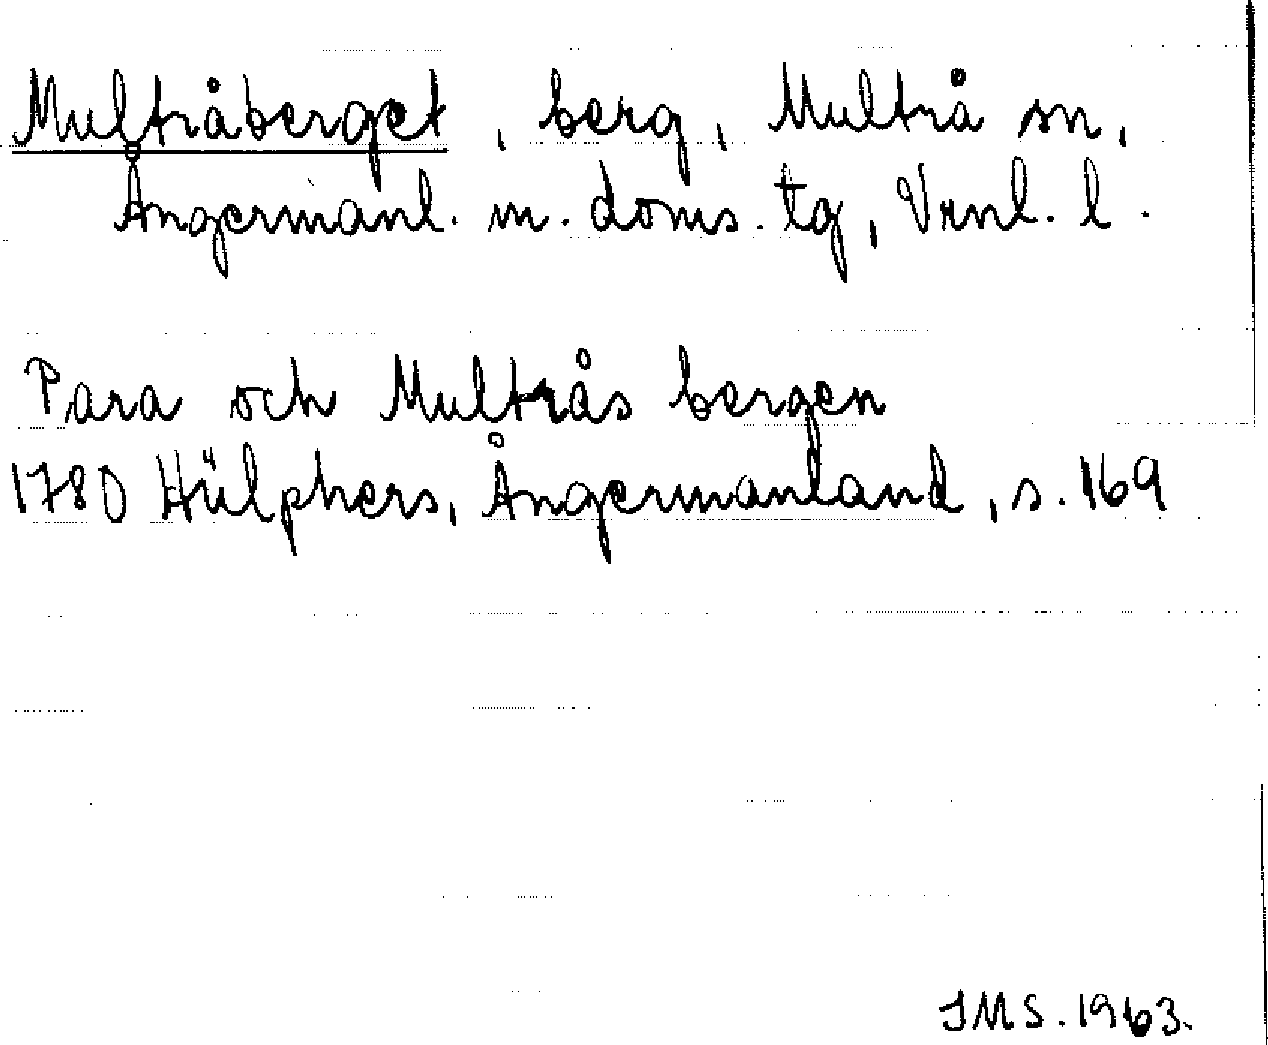 Multråberget, berg, Multrå sn,
Ångermanl. m. doms. tg, Vrnl. l.
Para och Multrås bergen
1780 Hülphers, Ångermanland, s. 169
JMS. 1963.